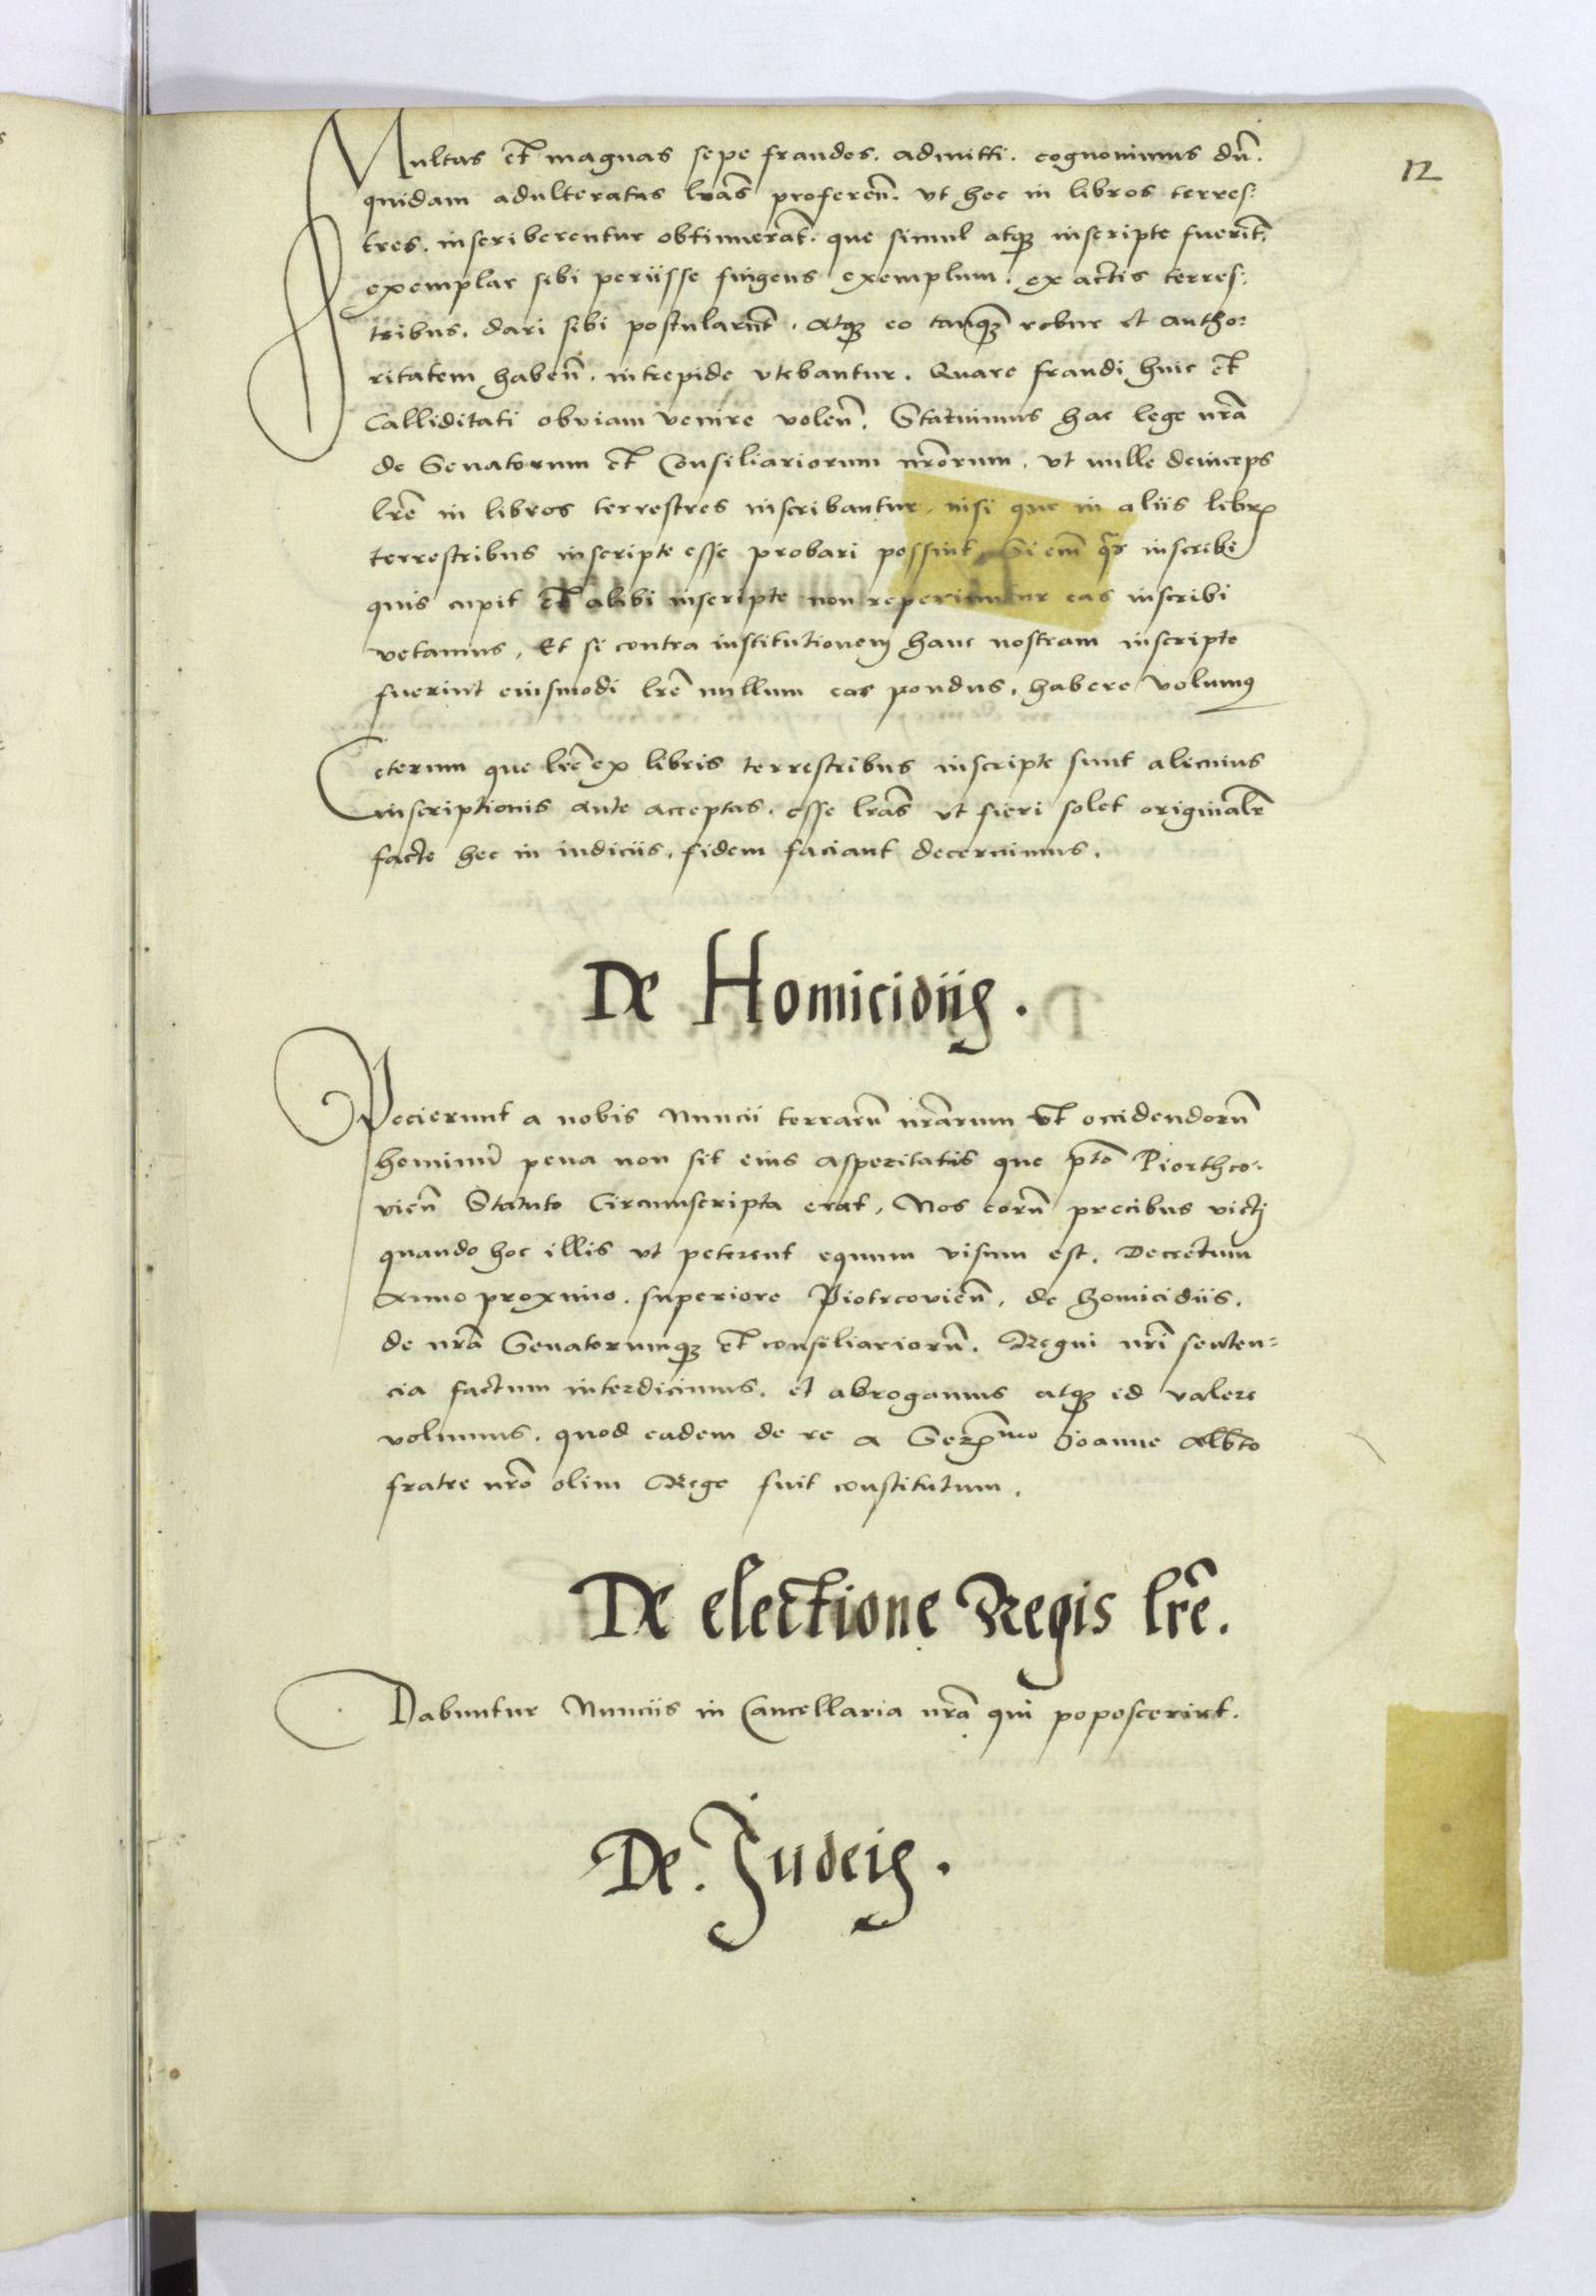 12
Multas et magnas sepe fraudes. admitti. cognovimus dū.
quidam adulteratas lrās proferen̄. ut hec in libros terres:
tres. inscriberentur obtinuerāt. que simul atqȝ inscripte fuerīt.
exemplar sibi periisse fingens exemplum. ex actis terres:
tribus. dari sibi postularūt. atqȝ eo tanqȝ robur et autho:
ritatem haben̄. intrepide utebantur. Quare fraudi huic et
Calliditati obviam venire volen̄. Statuimus hac lege nrā
de Senatorum et Consiliariorum nrōrum. ut nulle deinceps
lrē in libros terrestres inscribantur, nisi que in aliis libr
terrestribus inscripte esse probari possint. Si em̄ inscribi
quis cupit et alibi inscripte non reperiuntur eas inscribi
vetamus. Et si contra institutionem hanc nostram inscripte
fuerint eiusmodi lrē nullum eas pondus. habere volumus
Ceterum que lrē ex libris terrestribus inscripte sunt alicuius
inscriptionis ante acceptas. esse lrās ut fieri solet originalē
facte hec in iudiciis. fidem faciant decernimus.
De Homicidiis.
Pecierunt a nobis Nuncii terrarū nrārum Ut occidendorū
hominū pena non sit eius asperitatis que ptō Piorthco:
vien̄ Statuto Circumscripta erat, Nos eorū precibus victi
quando hoc illis ut peterent equum visum est. Decretum
Anno proximo. superiore Piotrcovien̄. de homicidiis.
de nrā Senatorumqȝ et consiliariorū. Regni nrī senten=
cia factum interdicimus. et abrogamus atqȝ id valere
volumus. quod eadem de re a Ser͞mo Joanne Albto
fratre nrō olim Rege fuit constitutum.
De electione Regis lrē.
Dabuntur Nunciis in Cancellaria nrā qui poposcerint.
De. Judeis.